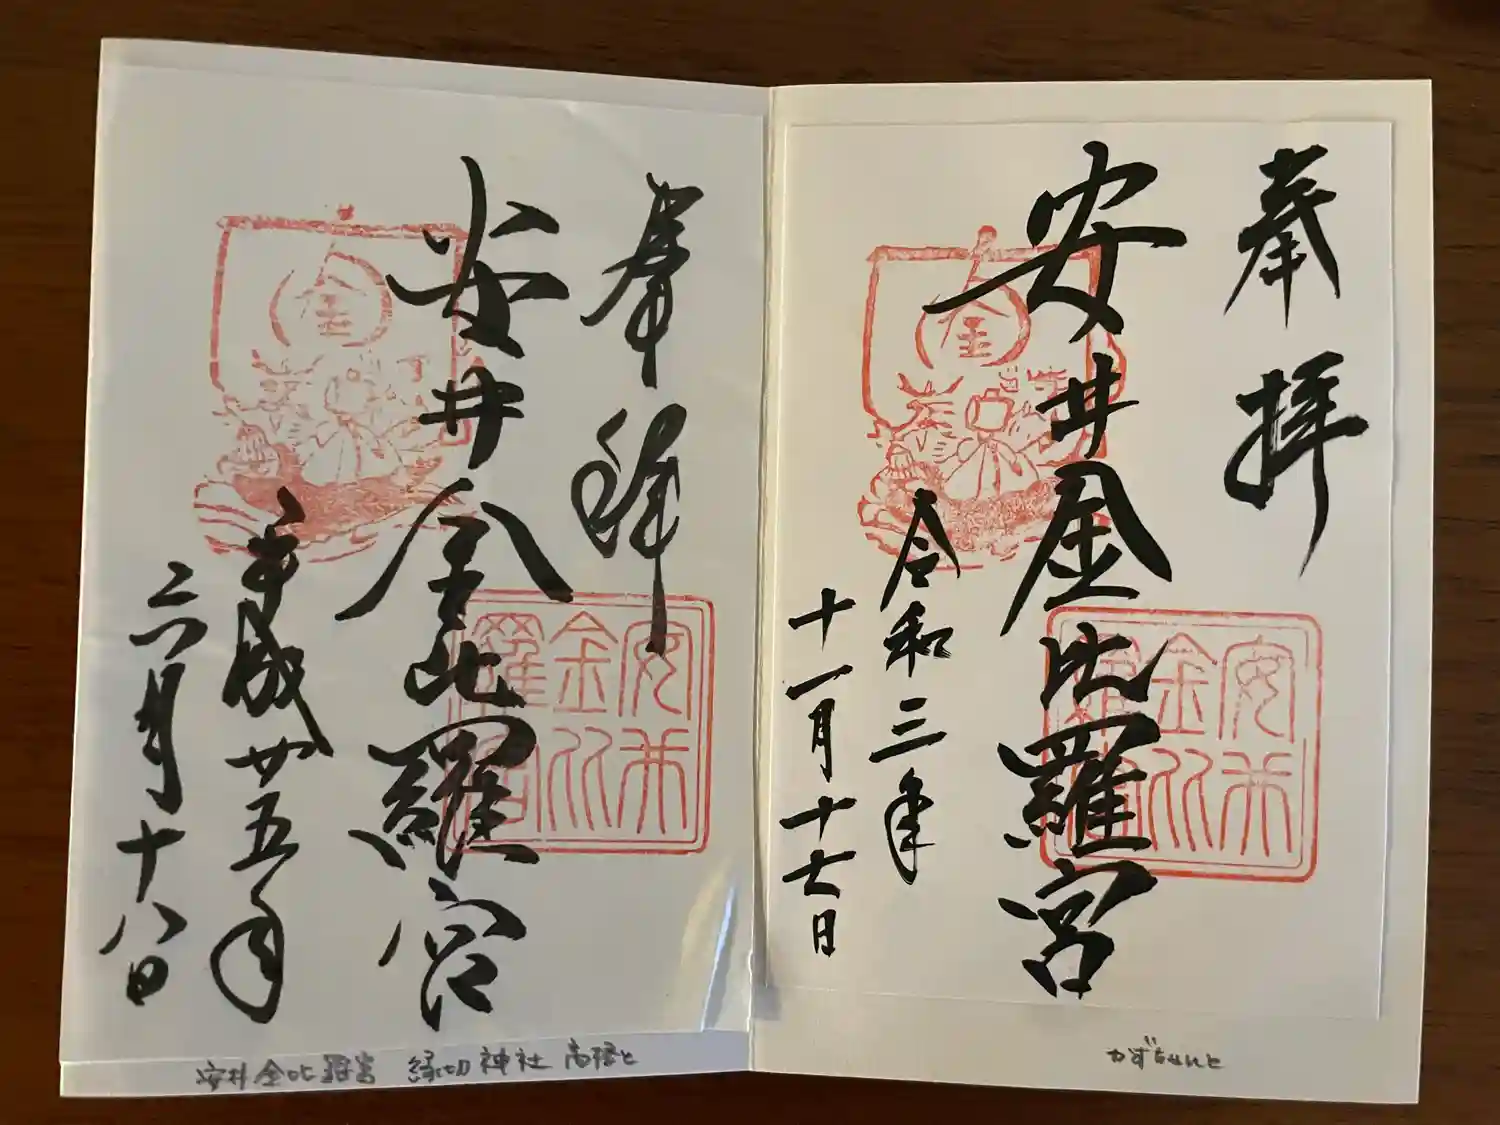 奉拝
安井金比羅宮
令和三年
十一月十七日
安井金比羅宮
金
かずちゃんと
奉拝
安井金比羅宮
平成廿五年
六月十八日
安井金比羅宮
金
安井金比羅宮 縁切神社 高橋と